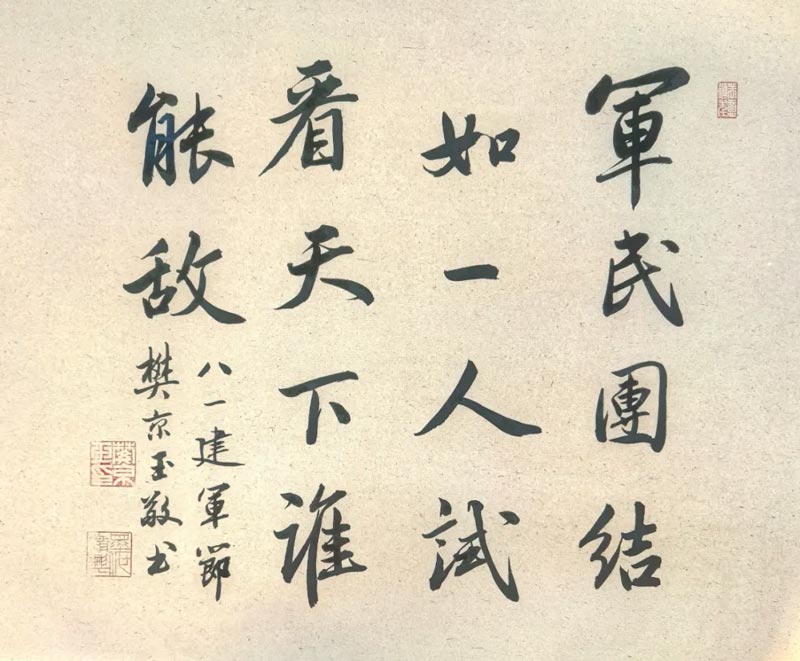 軍民團結
如一人試
看天下誰
能敌
八一建軍節
樊京玉敬书